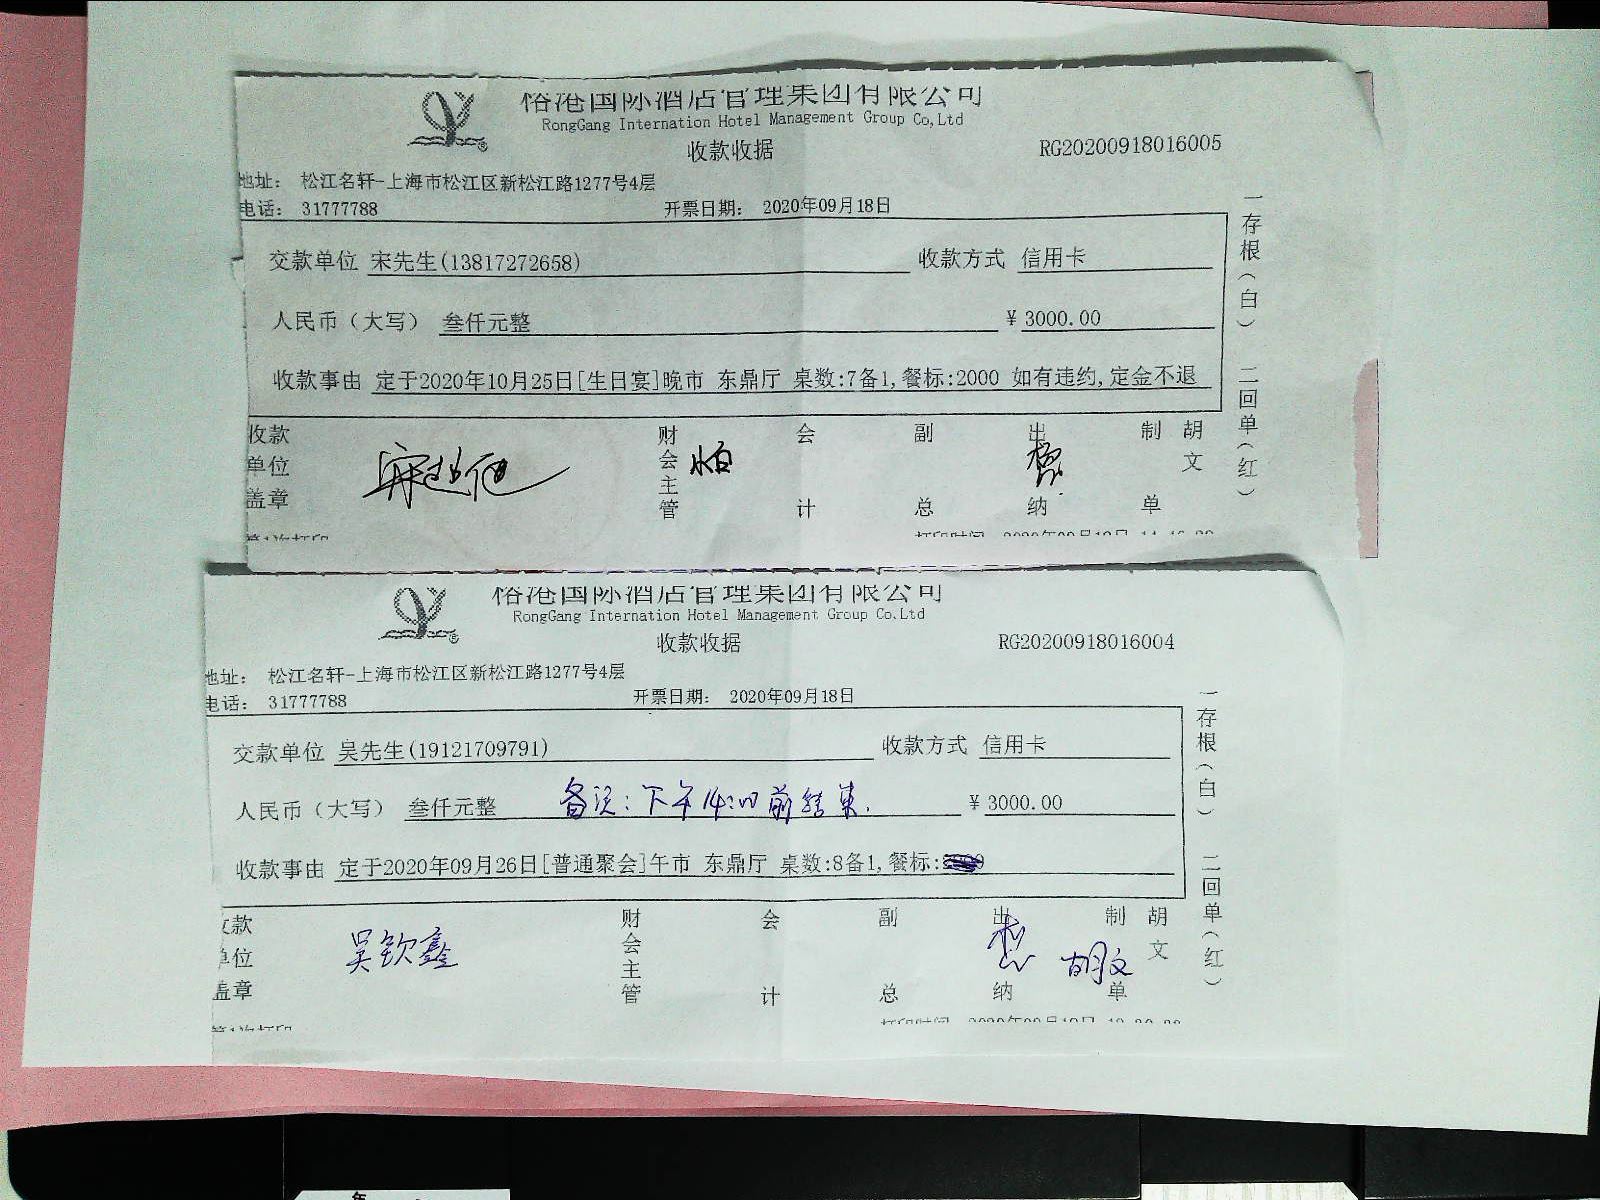 港国际酒店管理集团有限公司
RongGang Internation Hotel Management Group Co,Ltd
收款收据
RG20200918016005
地址： 松江名轩-上海市松江区新松江路1277号4层
电话： 31777788 开票日期： 2020年09月18日
交款单位 宋先生(13817272658) 收款方式 信用卡
人民币（大写） 叁仟元整 ¥ 3000.00
收款事由 定于2020年10月25日[生日宴]晚市 东鼎厅 桌数:7备1,餐标:2000 如有违约,定金不退
收款单位盖章
财会主管
会计
副总
出纳
制单
胡文
一存根（白） 二回单（红）
第1次打印
打印时间 2020年09月18日
港国际酒店管理集团有限公司
RongGang Internation Hotel Management Group Co.Ltd
收款收据
RG20200918016004
地址： 松江名轩-上海市松江区新松江路1277号4层
电话： 31777788 开票日期： 2020年09月18日
交款单位 吴先生(19121709791) 收款方式 信用卡
备注：下午14:00前结束.
人民币（大写） 叁仟元整 ¥ 3000.00
收款事由 定于2020年09月26日[普通聚会]午市 东鼎厅 桌数:8备1,餐标:
收款单位盖章
吴钦鑫
财会主管
会计
副总
出纳
胡文
制单
胡文
一存根（白） 二回单（红）
第1次打印
打印时间 2020年09月18日